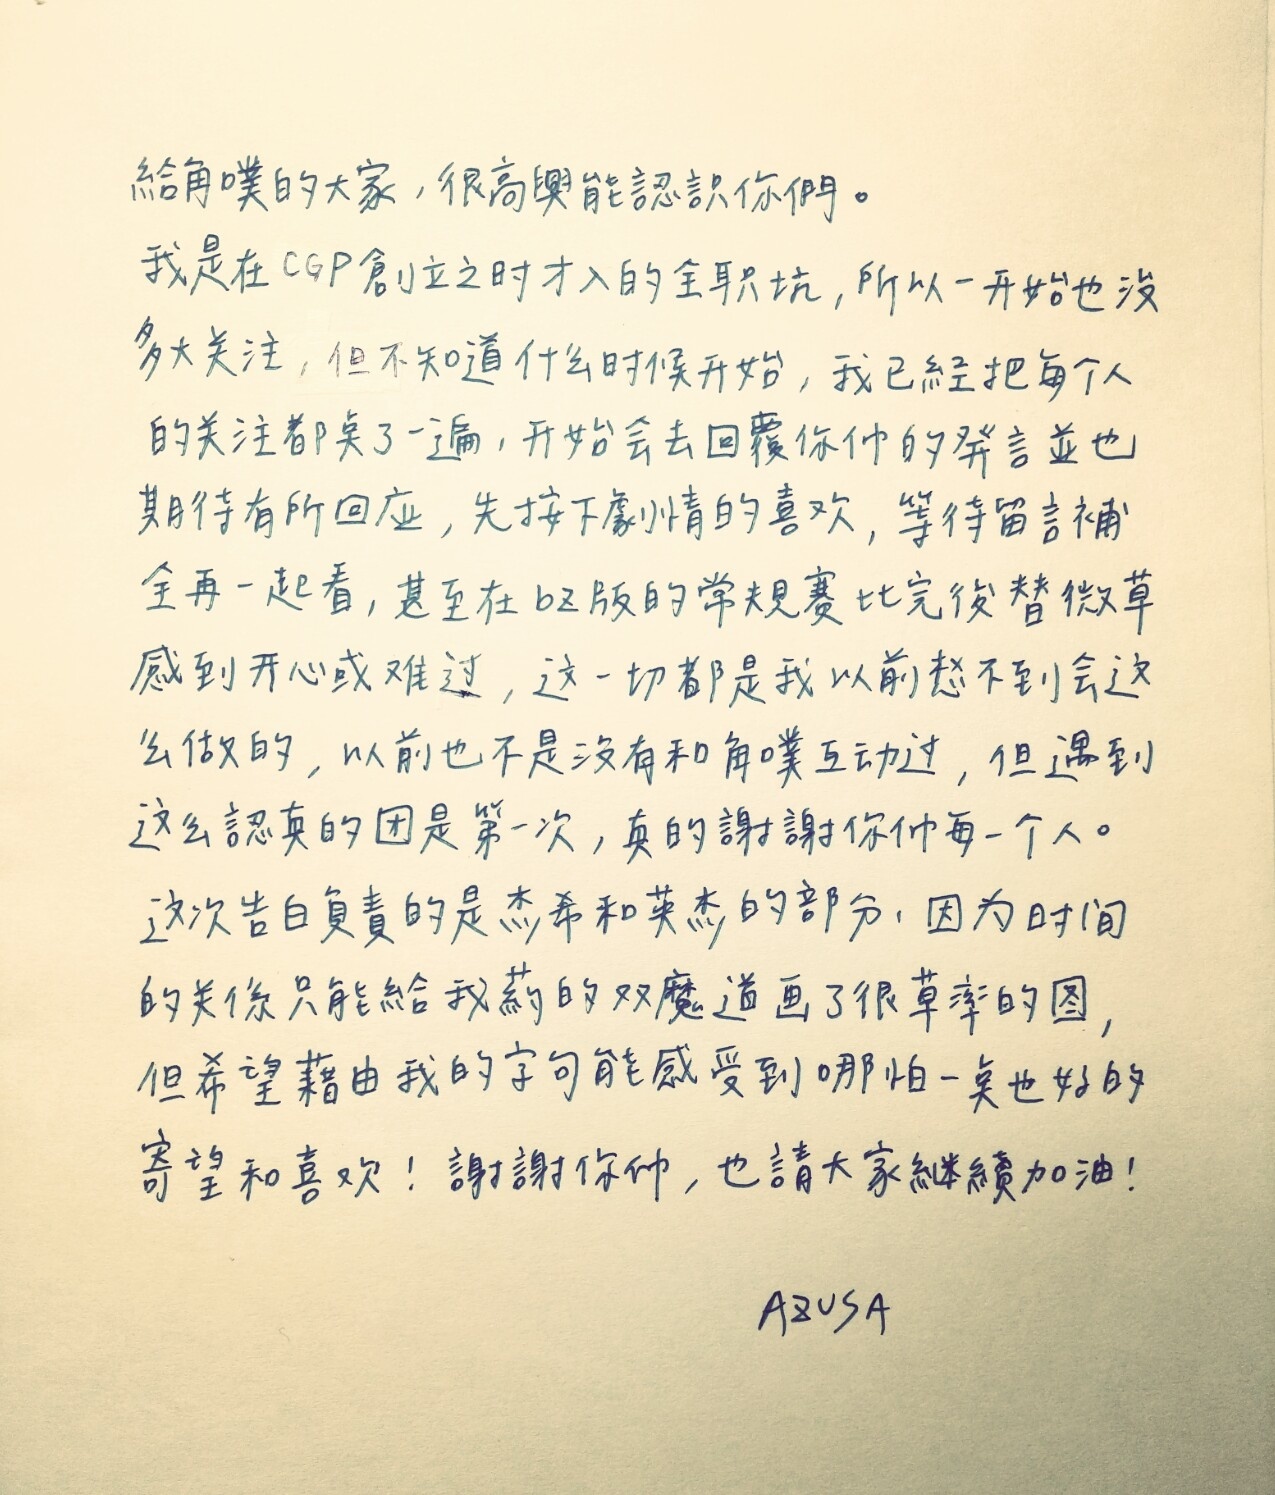 給角噗的大家，很高興能認識你們。
我是在CGP創立之时才入的全职坑，所以一开始也没
多大关注，但不知道什么时候开始，我已經把每个人
的关注都点了一遍，开始会去回覆你们的発言並也
期待有所回应，先按下劇情的喜欢，等待留言補
全再一起看，甚至在bz版的常規赛比完後替微草
感到开心或难过，这一切都是我以前想不到会这
么做的，以前也不是没有和角噗互动过，但遇到
这么認真的团是第一次，真的謝謝你们每一个人。
这次告白負責的是杰希和英杰的部分，因为时间
的关係只能給我药的双魔道画了很草率的图，
但希望藉由我的字句能感受到哪怕一点也好的
寄望和喜欢！謝謝你们，也請大家継續加油！
AZUSA